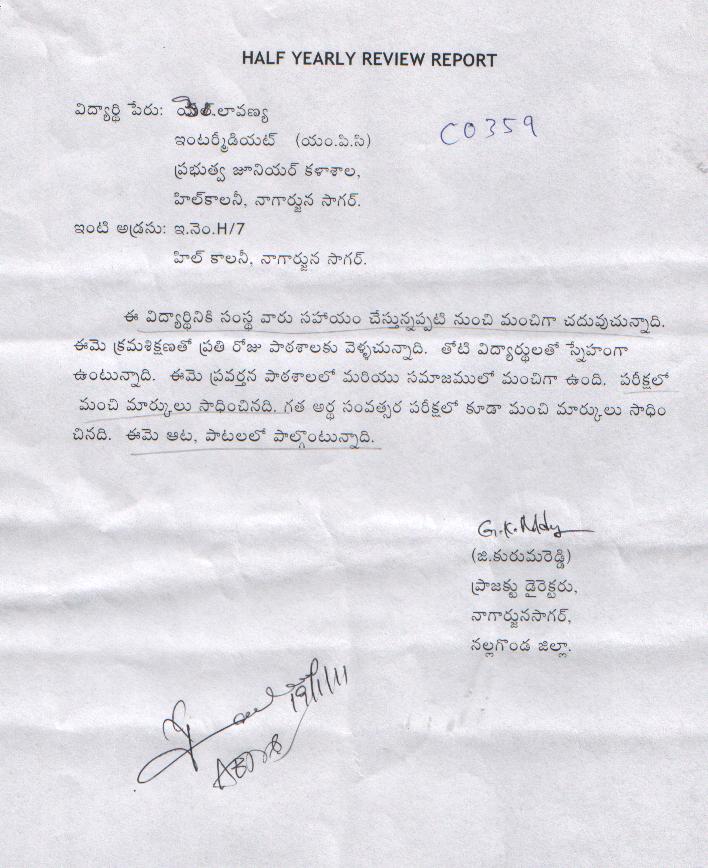 HALF YEARLY REVIEW REPORT
విద్యార్థి పేరు: లావణ్య
C0359
ఇంటర్మీడియట్ (యం.పి.సి)
ప్రభుత్వ జూనియర్ కళాశాల,
హిల్‌కాలనీ, నాగార్జున సాగర్.
ఇంటి అడ్రసు: ఇ.నెం.H/7
హిల్ కాలనీ, నాగార్జున సాగర్.
ఈ విద్యార్థినికి సంస్థ వారు సహాయం చేస్తున్నప్పటి నుంచి మంచిగా చదువుచున్నాది.
ఈమె క్రమశిక్షణతో ప్రతి రోజు పాఠశాలకు వెళ్ళచున్నాది. తోటి విద్యార్థులతో స్నేహంగా
ఉంటున్నాది. ఈమె ప్రవర్తన పాఠశాలలో మరియు సమాజములో మంచిగా ఉంది. పరీక్షలో
మంచి మార్కులు సాధించినది. గత అర్థ సంవత్సర పరీక్షలో కూడా మంచి మార్కులు సాధిం
చినది. ఈమె ఆట, పాటలలో పాల్గొంటున్నాది.
G.K.Reddy
(జి.కురుమరెడ్డి)
ప్రాజక్టు డైరెక్టరు,
నాగార్జునసాగర్,
నల్లగొండ జిల్లా.
19/1/11